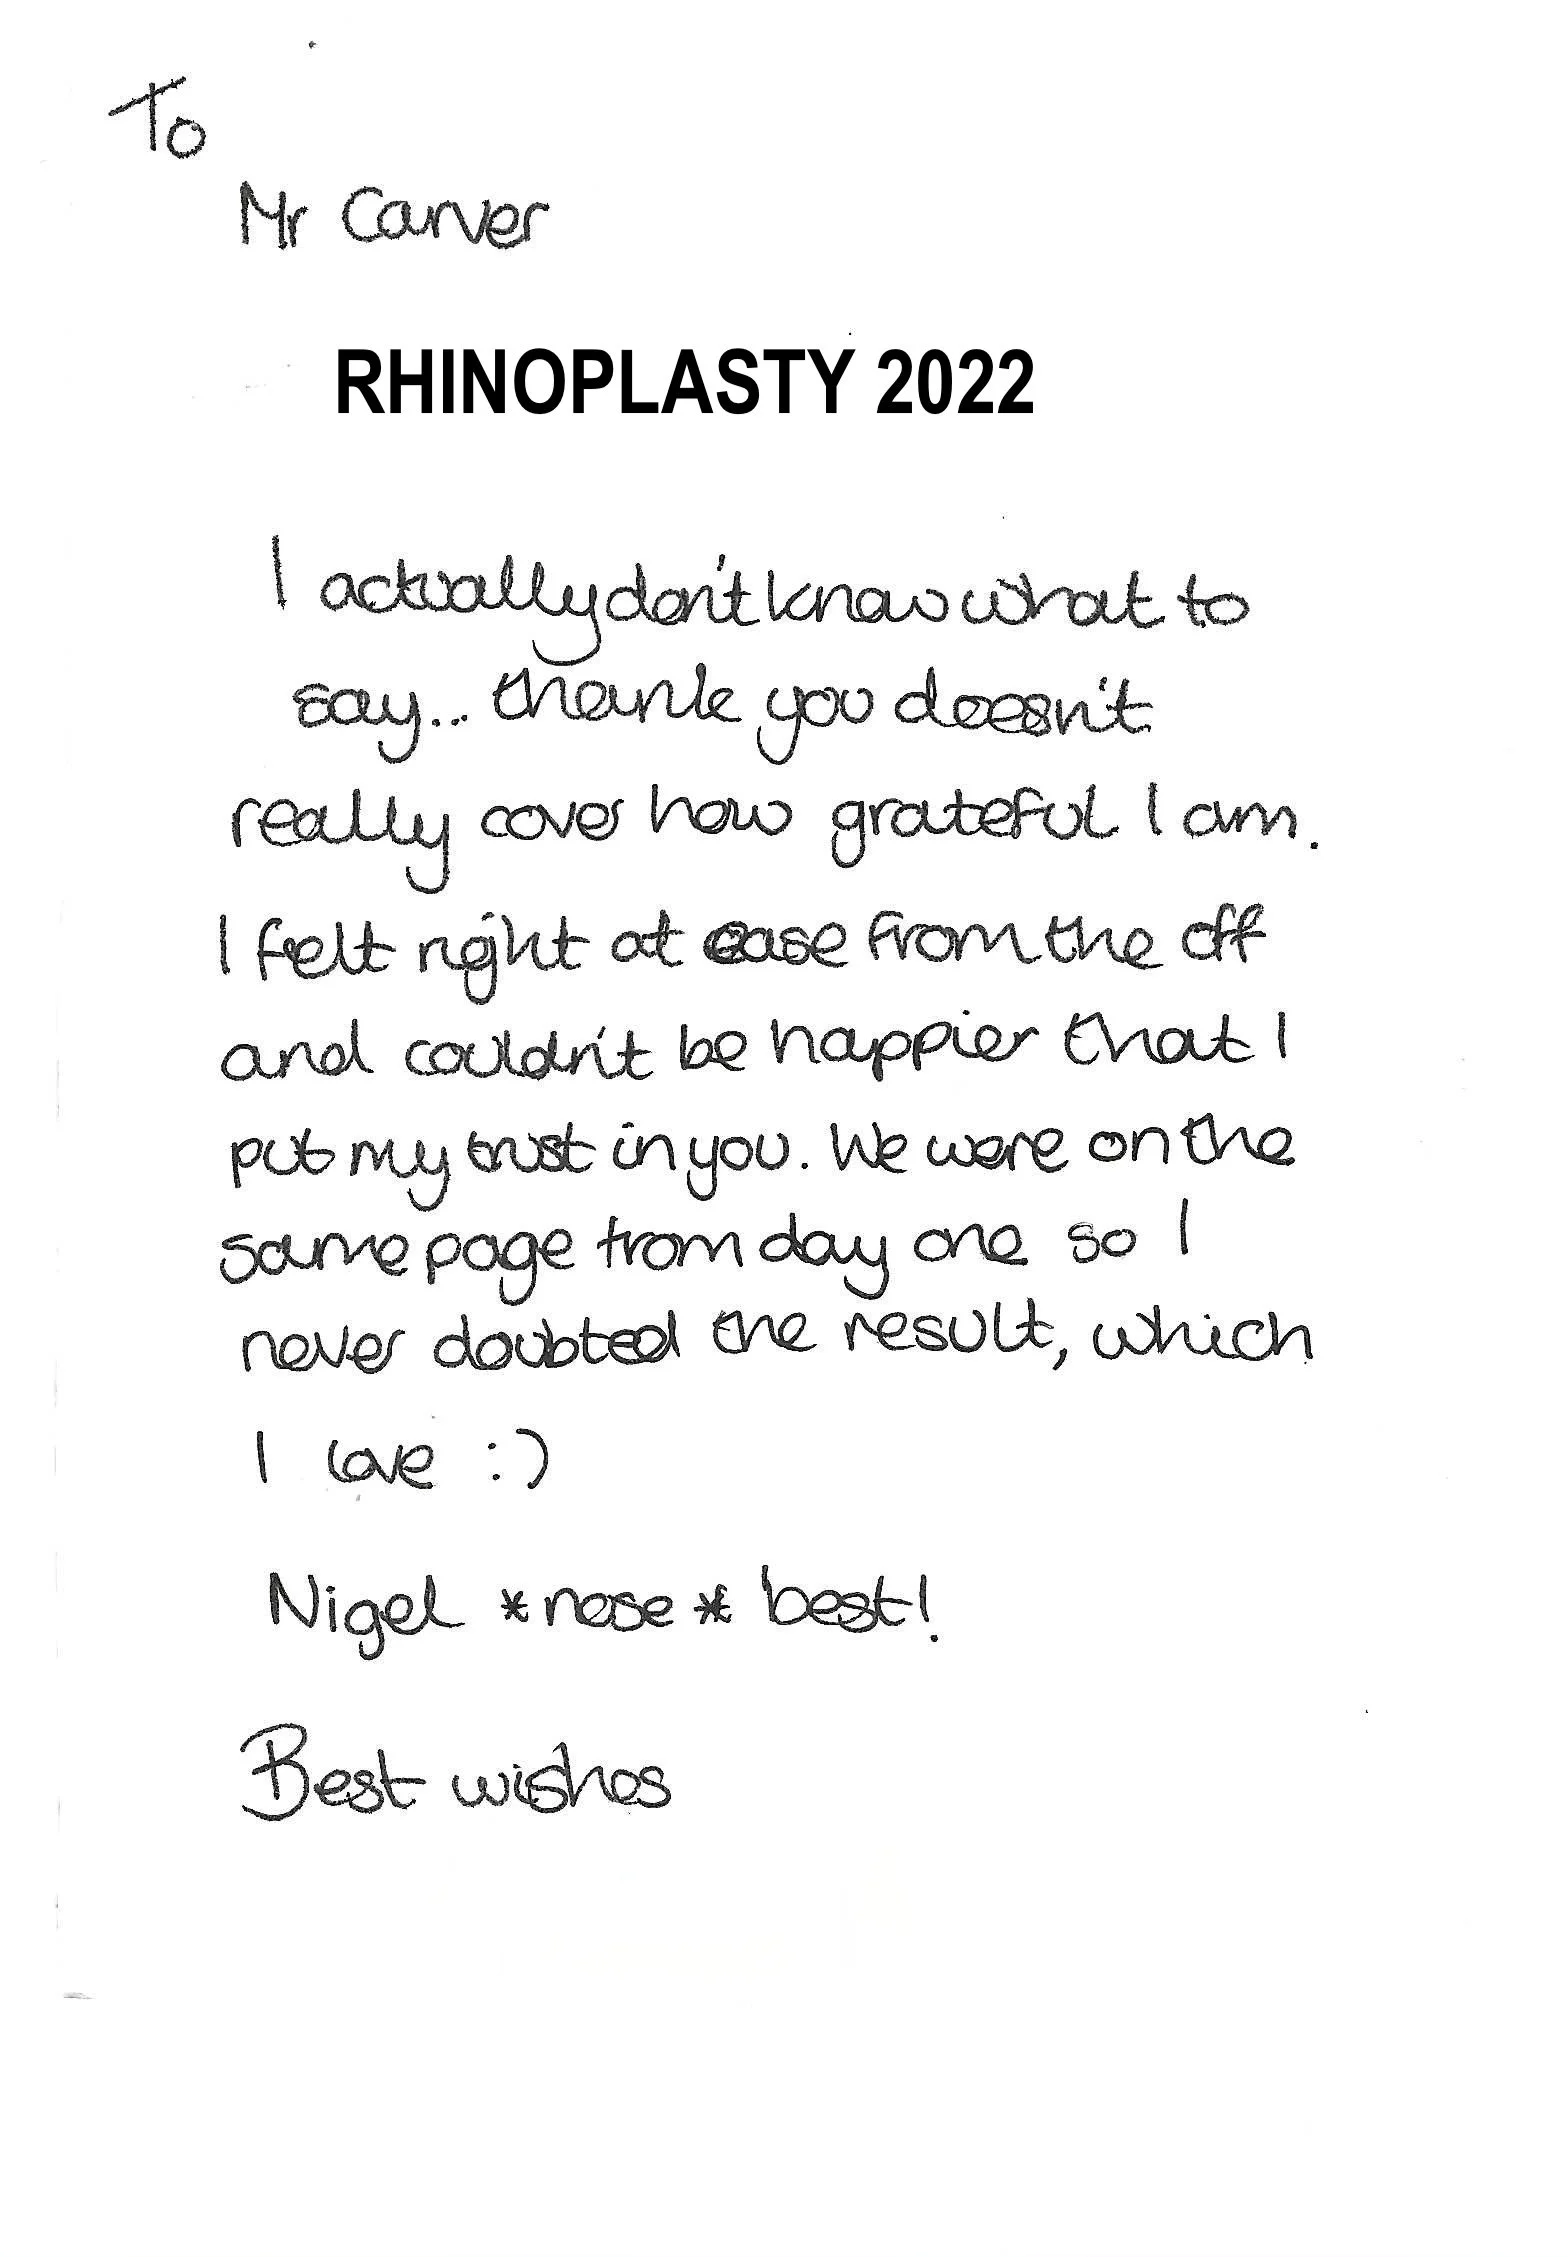 To
Mr Carver
RHINOPLASTY 2022
I actually don't know what to
say... thank you doesn't
really cover how grateful I am.
I felt right at ease from the off
and couldn't be happier that I
put my trust in you. We were on the
same page from day one so I
never doubted the result, which
I love :)
Nigel *nose* best!
Best wishes